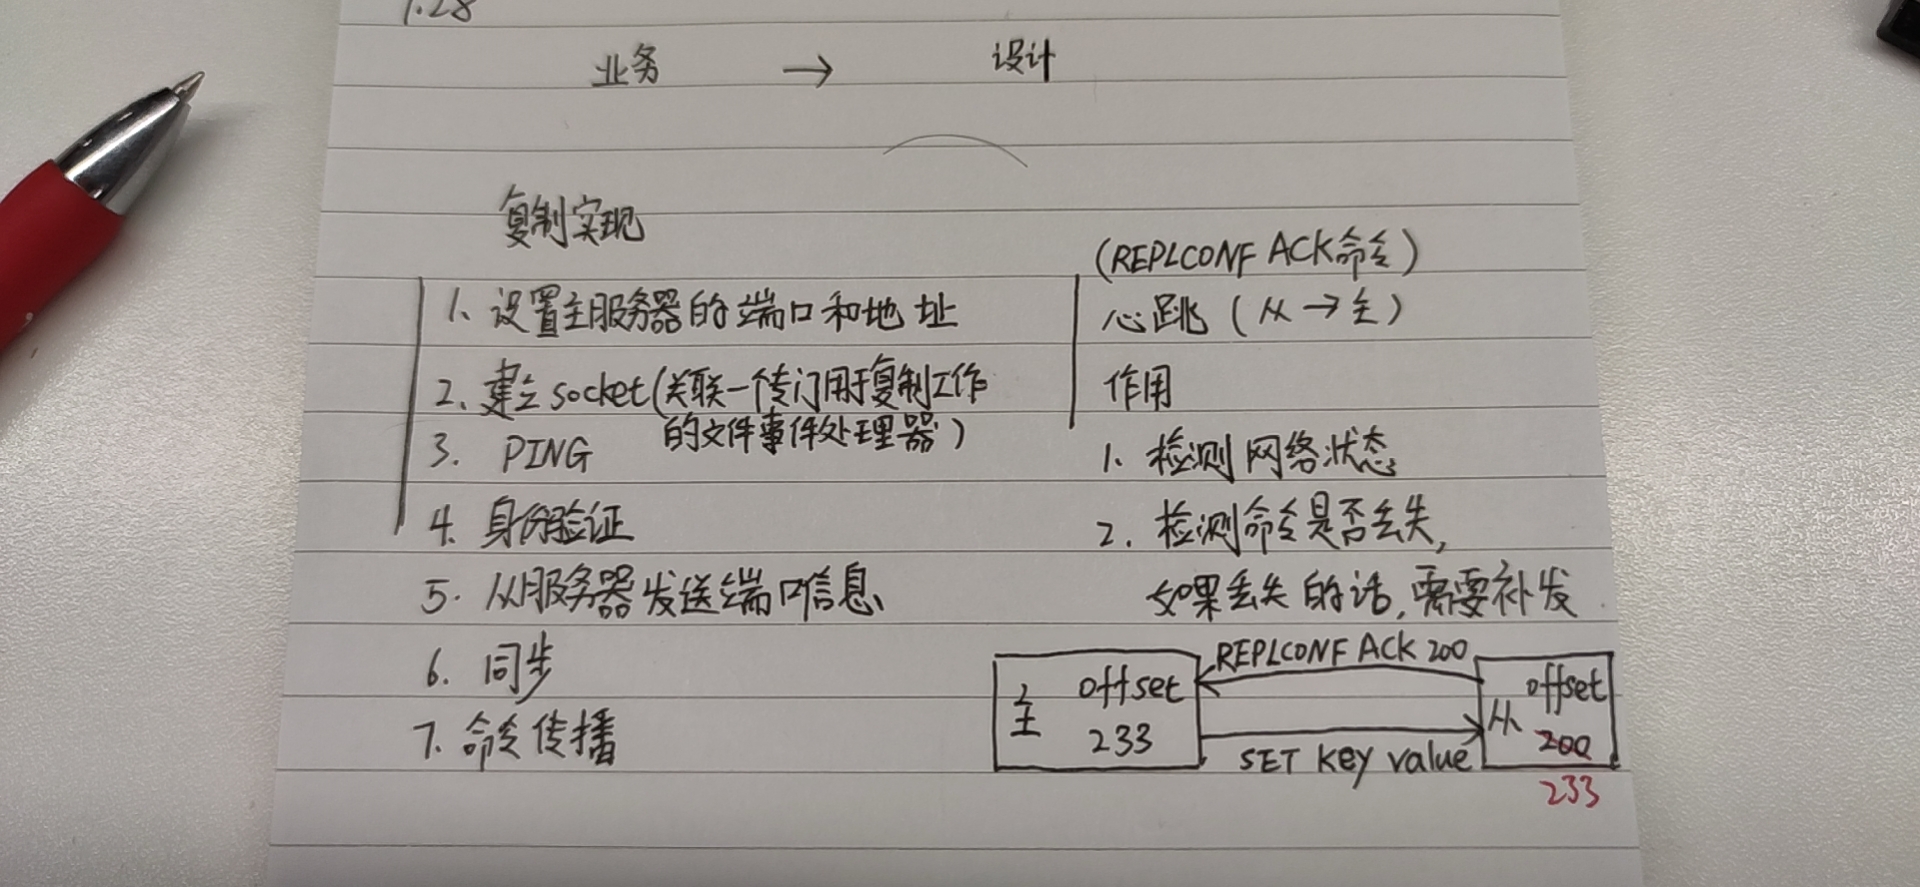 1.28
业务 → 设计
复制实现
1、设置主服务器的端口和地址
2、建立 socket(关联一个专门用于复制工作
的文件事件处理器)
3. PING
4. 身份验证
5. 从服务器发送端口信息
6. 同步
7. 命令传播
(REPLCONF ACK命令)
心跳(从→主)
作用
1、检测网络状态
2. 检测命令是否丢失,
如果丢失的话,需要补发.
主 offset
233
REPLCONF ACK 200
SET Key value
从 offset
200
233